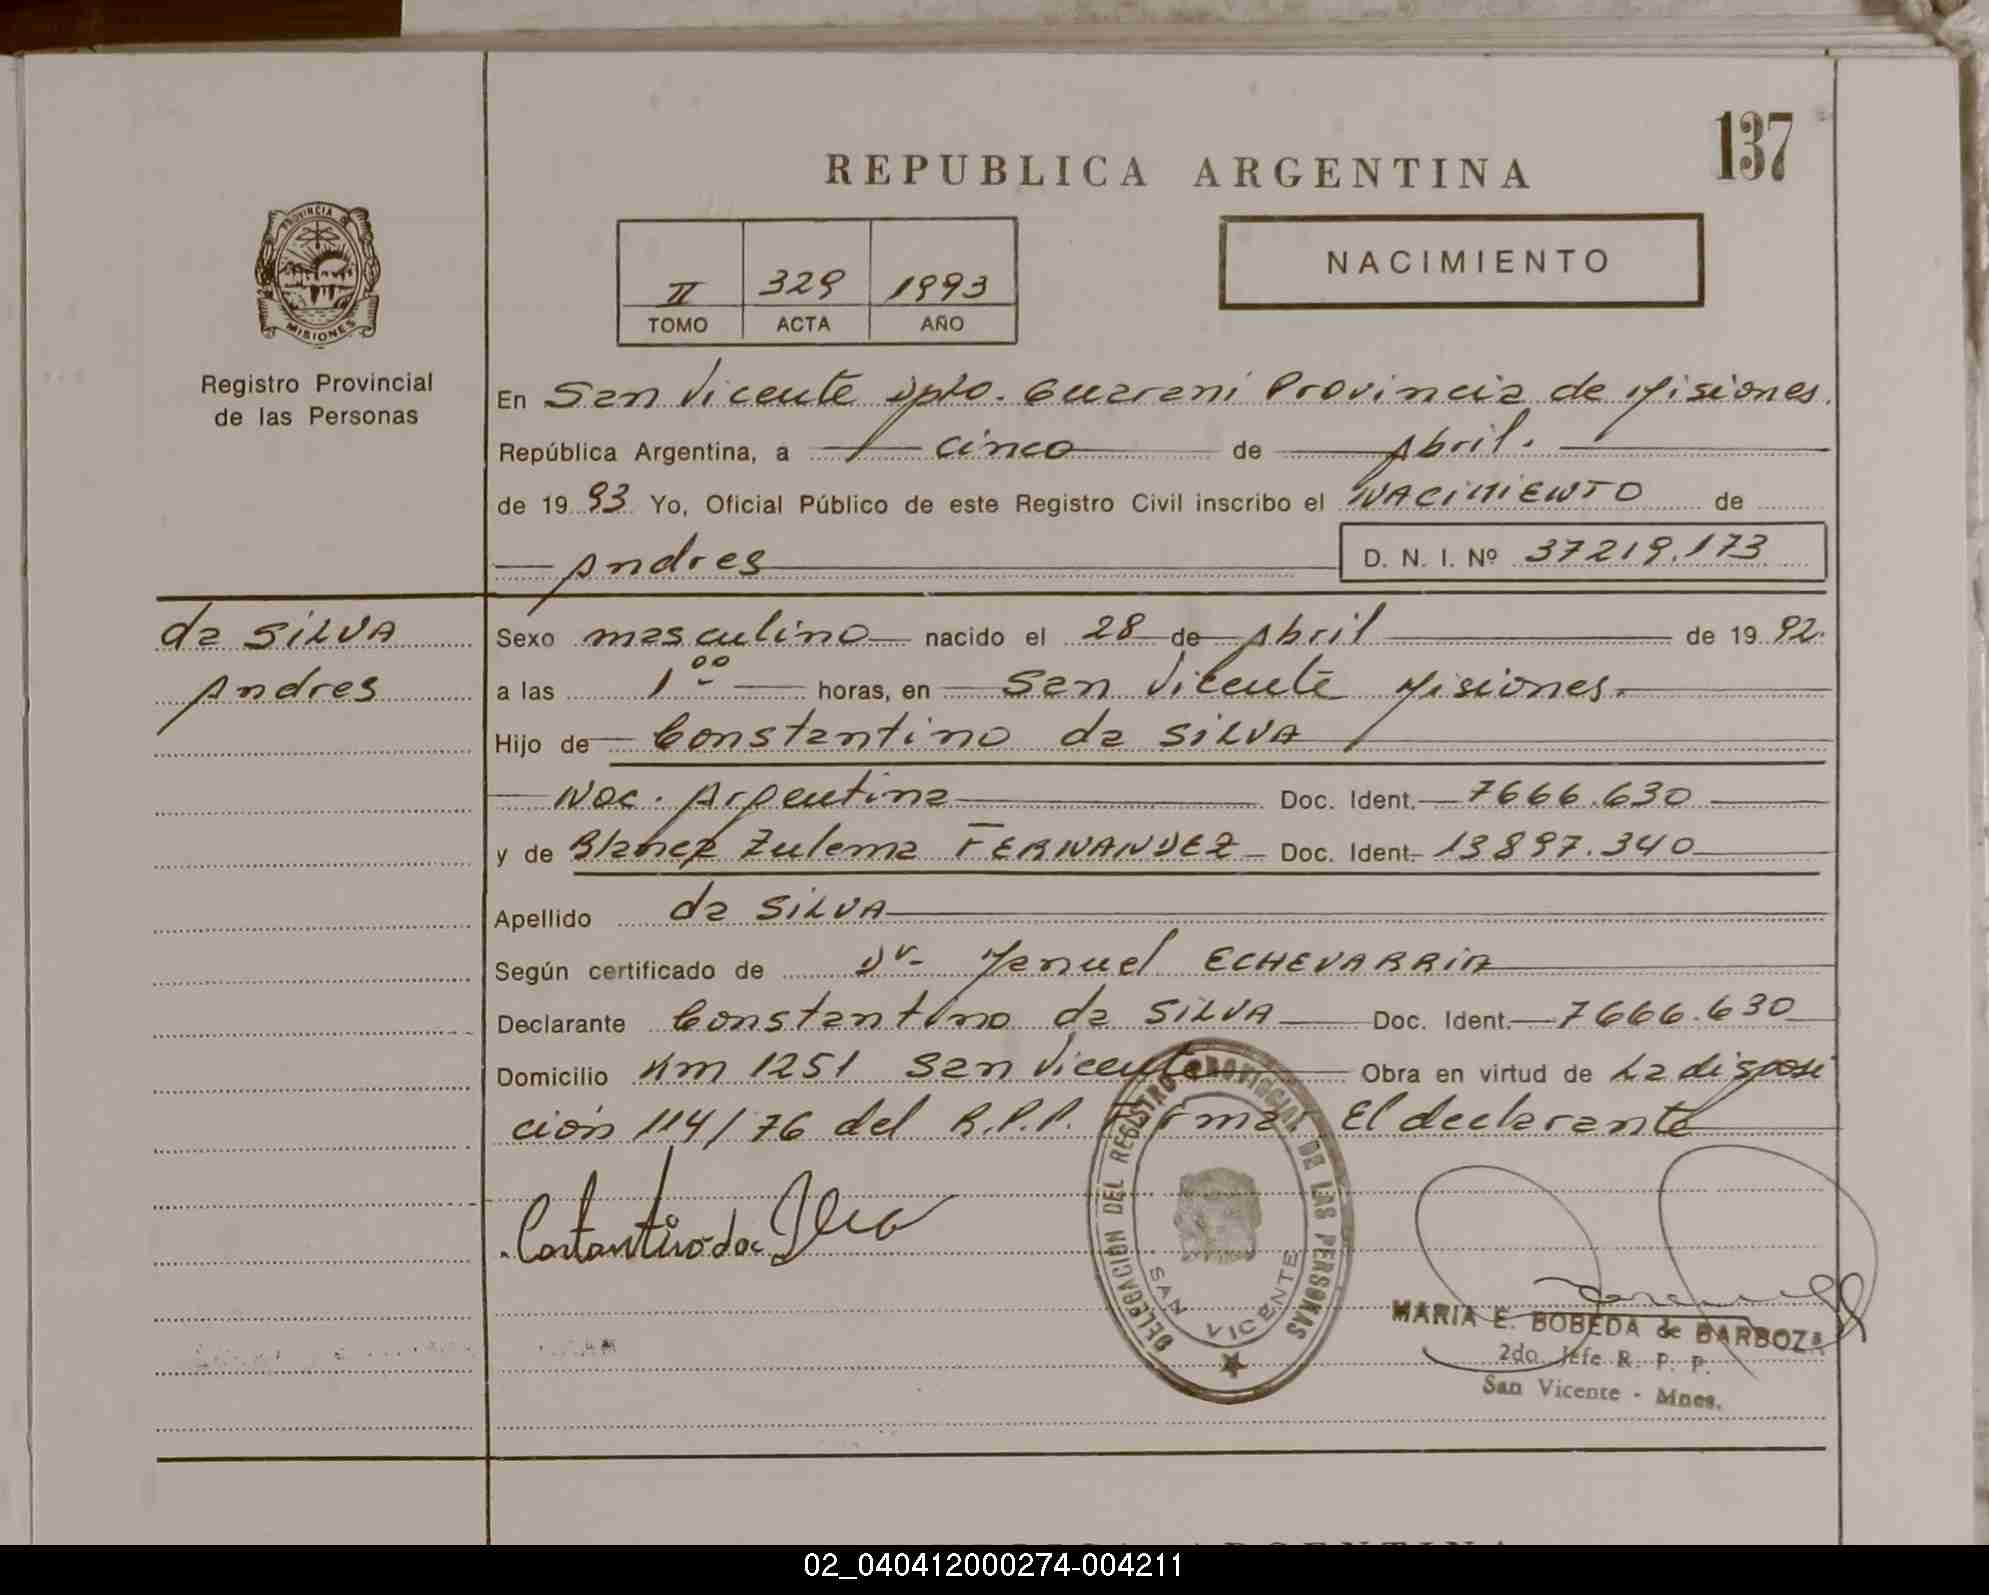 137
REPUBLICA ARGENTINA
PROVINCIA DE
MISIONES
Registro Provincial
de las Personas
NACIMIENTO
II 329 1993
TOMO ACTA AÑO
En San Vicente Dpto. Guarani Provincia de Misiones.
República Argentina, a cinco de Abril.
de 19 93 Yo, Oficial Público de este Registro Civil inscribo el NACIMIENTO de
Andres D. N. I. Nº 37219.173
da SILVA
Andres
Sexo masculino nacido el 28 de Abril de 19 92.
a las 1°° horas, en San Vicente Misiones.
Hijo de Constantino da SILVA
Nac. Argentina Doc. Ident. 7666.630
y de Blanca Zulema FERNANDEZ Doc. Ident. 13897.340
Apellido da SILVA
Según certificado de Dr. Manuel ECHEVARRIA
Declarante Constantino da SILVA Doc. Ident. 7666.630
Domicilio Km 1251 San Vicente Obra en virtud de La disposi
ción 114/76 del R.P.P. Firma: El declarante
Costantino da Silva
DELEGACION DEL REGISTRO PROVINCIAL DE LAS PERSONAS
SAN VICENTE
MARIA E. BOBEDA de BARBOZA
2do. Jefe R. P. P.
San Vicente - Mnes.
02_040412000274-004211